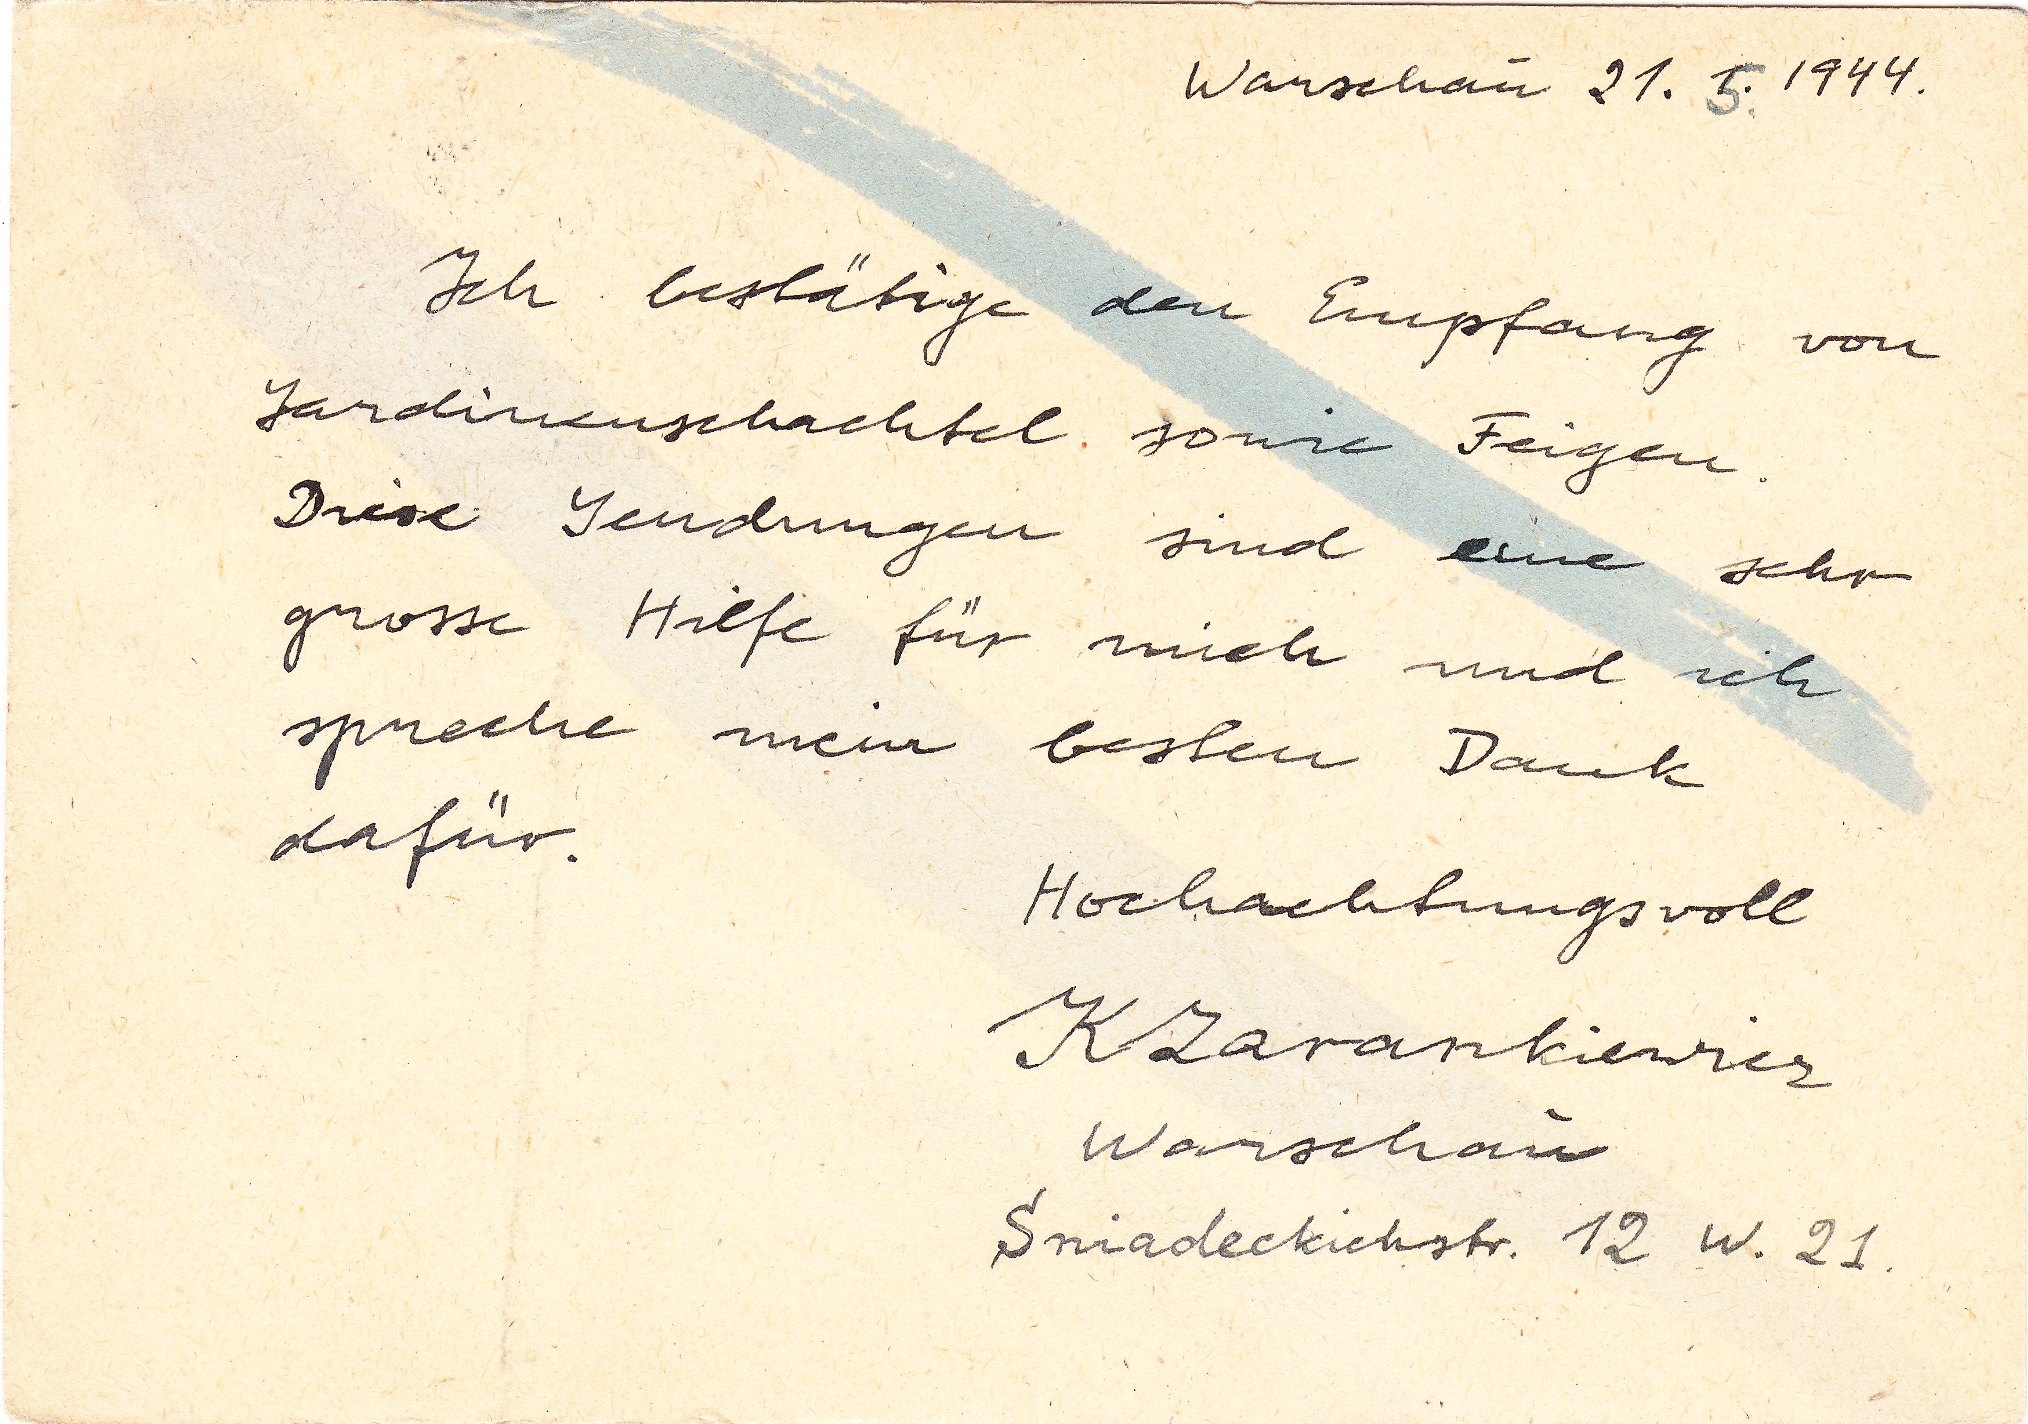 Warschau 21. 5. 1944.
Ich bestätige den Empfang von
Sardinenschachtel sowie Feigen.
Diese Sendungen sind eine sehr
grosse Hilfe für mich und ich
spreche mein besten Dank
dafür.
Hochachtungsvoll
K Zarankiewicz
Warschau
Śniadeckichstr. 12 W. 21.